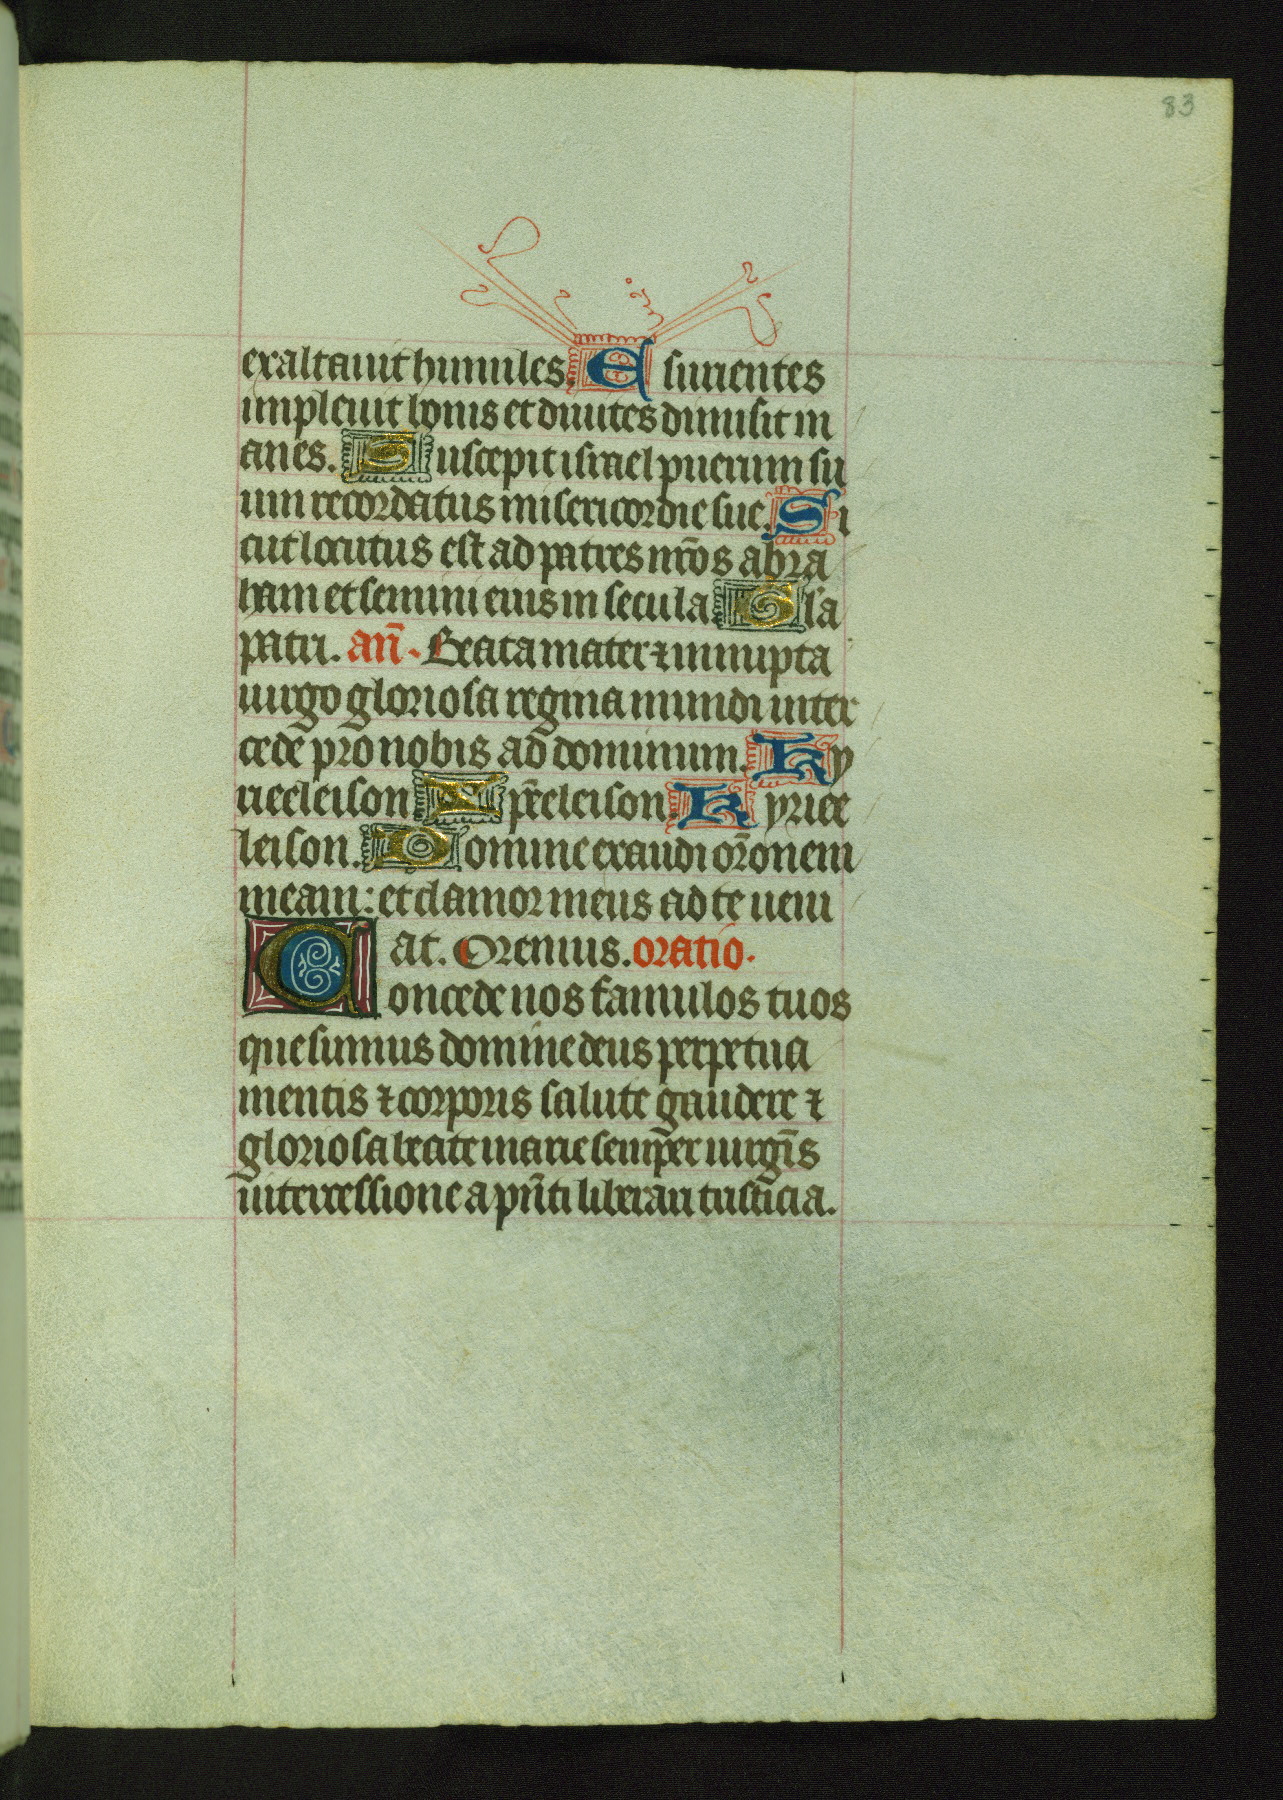 83
exaltauit humiles. Esurientes
impleuit bonis et diuites dimisit in
anes. Suscepit israel puerum su
um recordatus misericordie sue. Si
cut locutus est ad patres nr̄os abra
ham et semini eius in secula. Gl'a
patri. an̄. Beata mater ⁊ innupta
uirgo gloriosa regina mundi inter
cede pro nobis ad dominum. Ky
rieeleison. Xp̄eeleison. Kyriee
leison. Domine exaudi or̄onem
meam: et clamor meus ad te ueni
at. Oremus. oratio.
Concede nos famulos tuos
quesumus domine deus perpetua
mentis ⁊ corporis salute gaudere ⁊
gloriosa beate marie semp̄er uirgīs
intercessione a pn̄ti liberari tristicia.